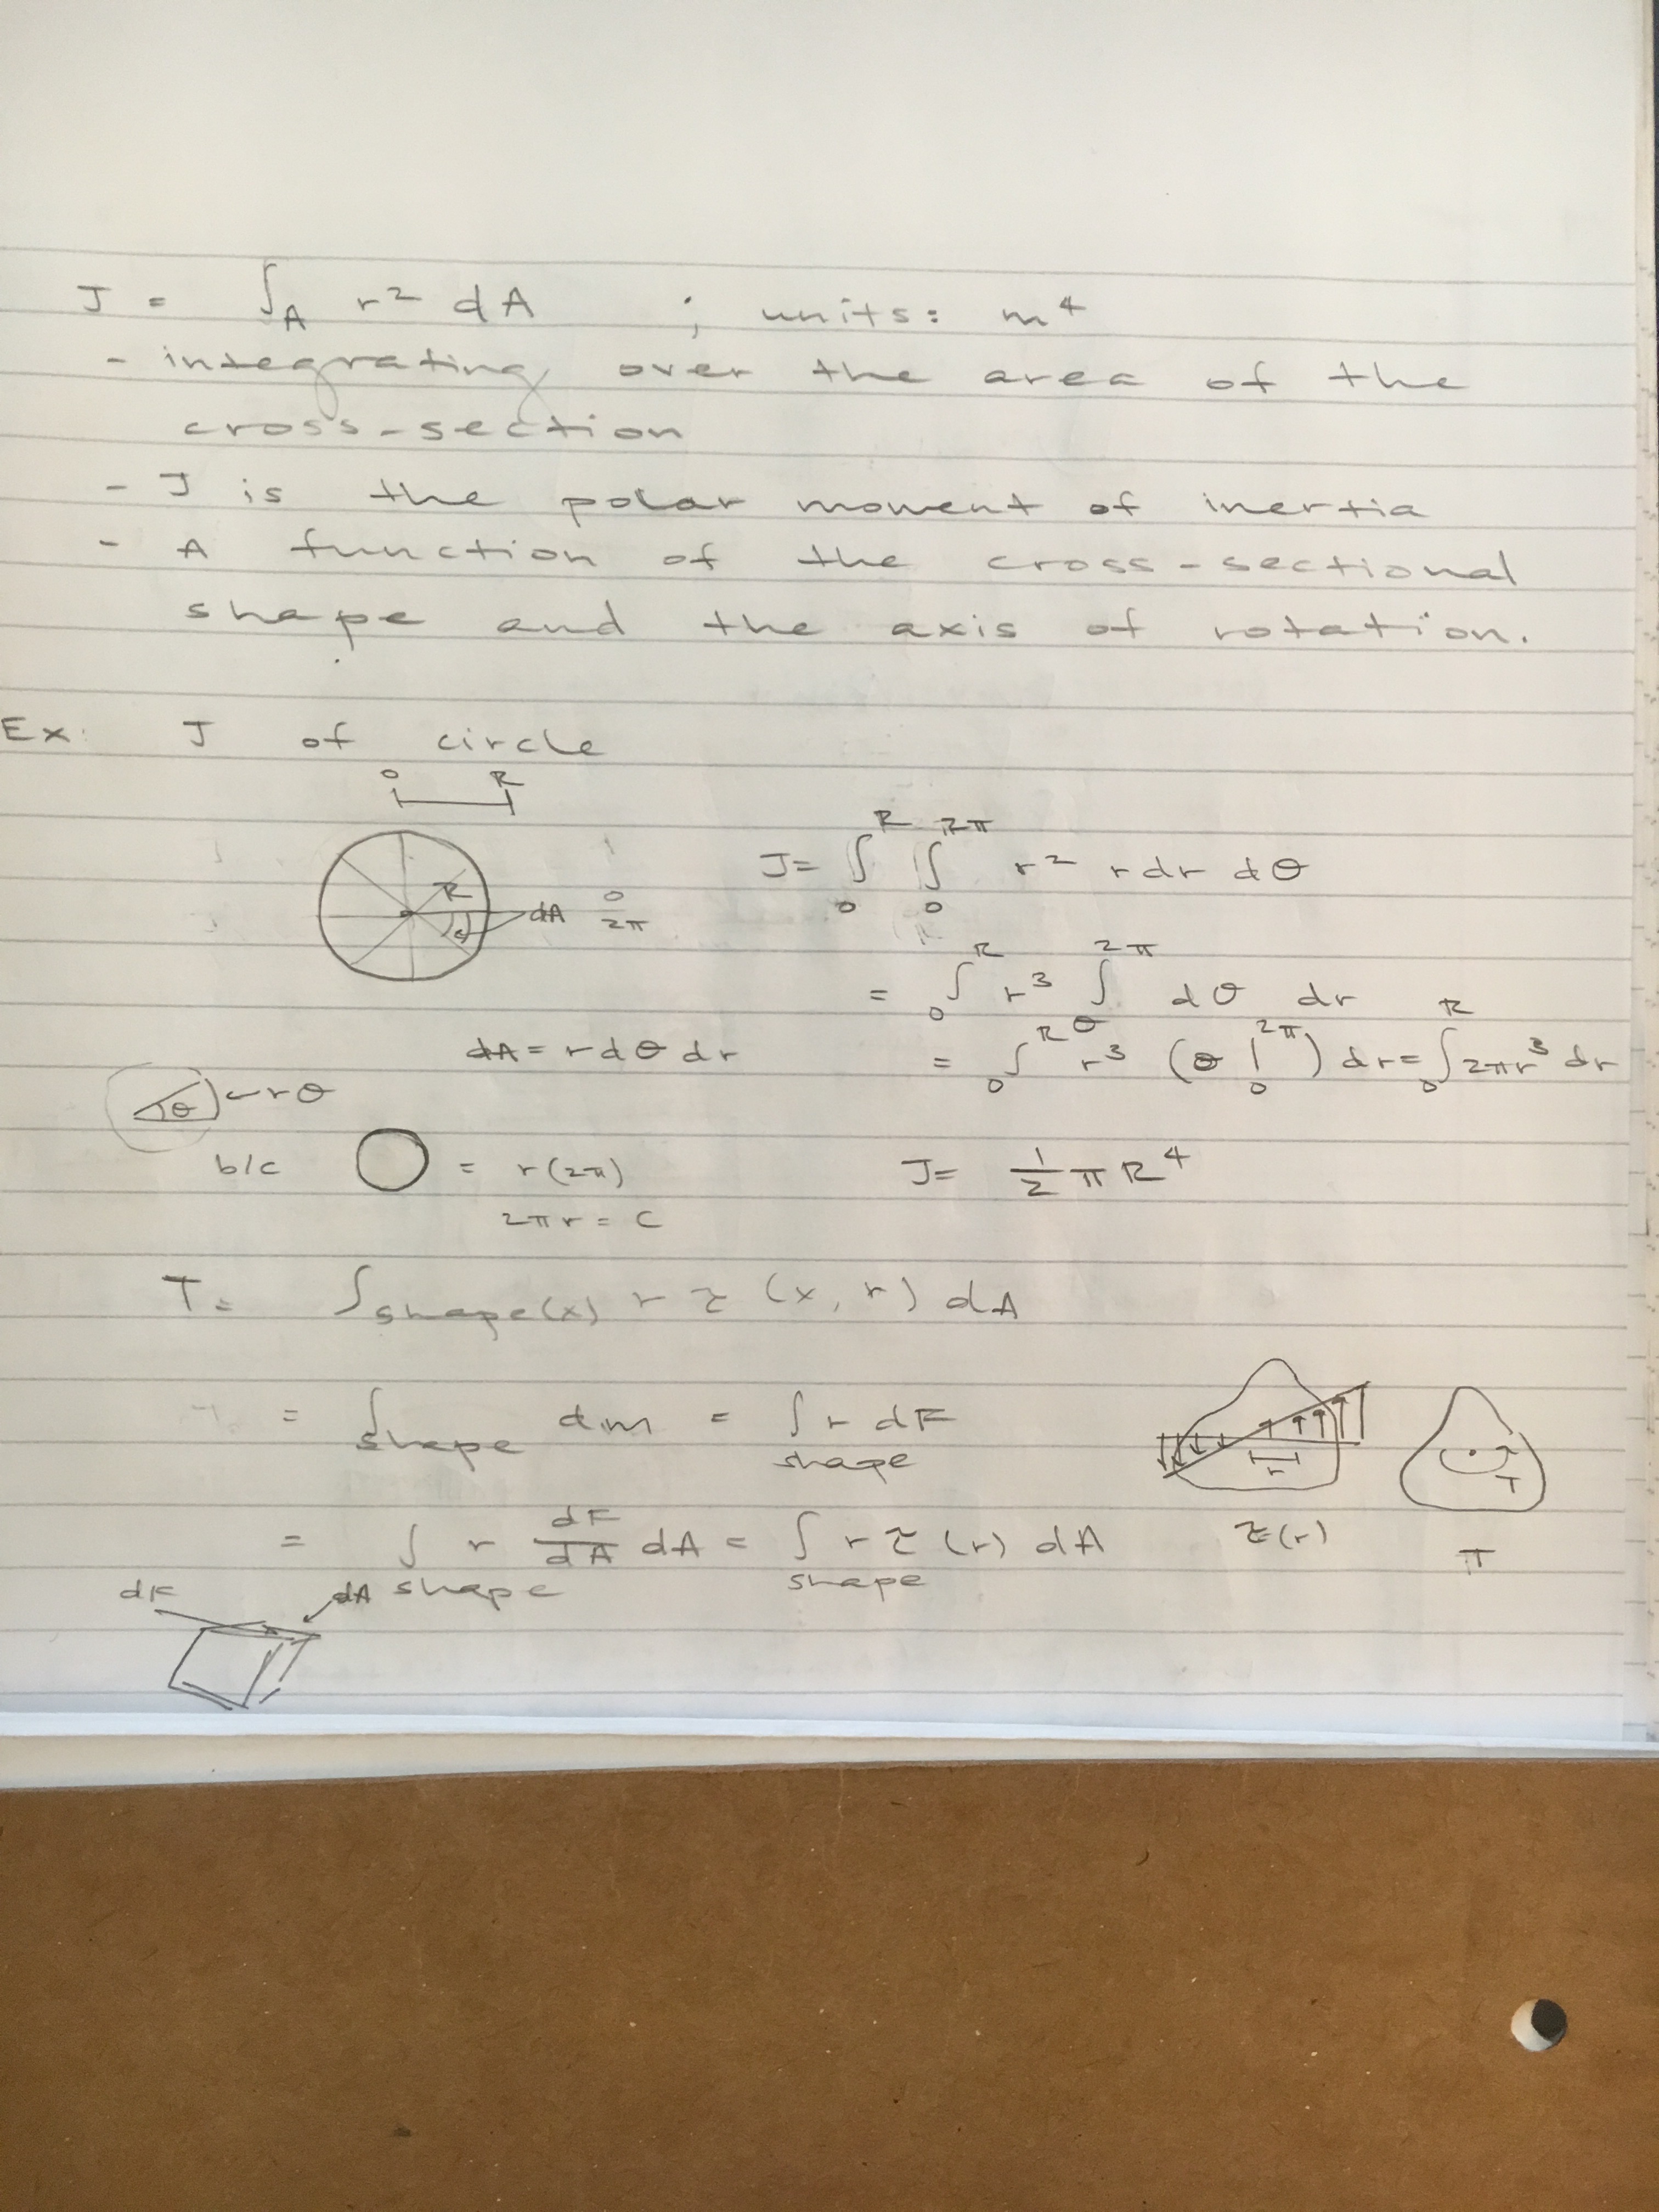 J = ∫_A r² dA ; units: m⁴
- integrating over the area of the
cross-section
- J is the polar moment of inertia
- A function of the cross-sectional
shape and the axis of rotation.
Ex: J of circle
0 R
R
dA
0
2π
J = ∫₀^R ∫₀^2π r² r dr dθ
= ∫₀^R r³ ∫₀^2π dθ dr
dA = r dθ dr
= ∫₀^R r³ (θ |₀^2π) dr = ∫₀^R 2πr³ dr
θ ← rθ
b/c ◯ = r(2π)
2πr = C
J = 1/2 π R⁴
T = ∫_shape(x) r τ (x, r) dA
= ∫_shape dm = ∫_shape r dF
r
T
= ∫_shape r dF/dA dA = ∫_shape r τ (r) dA
τ(r)
T
dF
dA